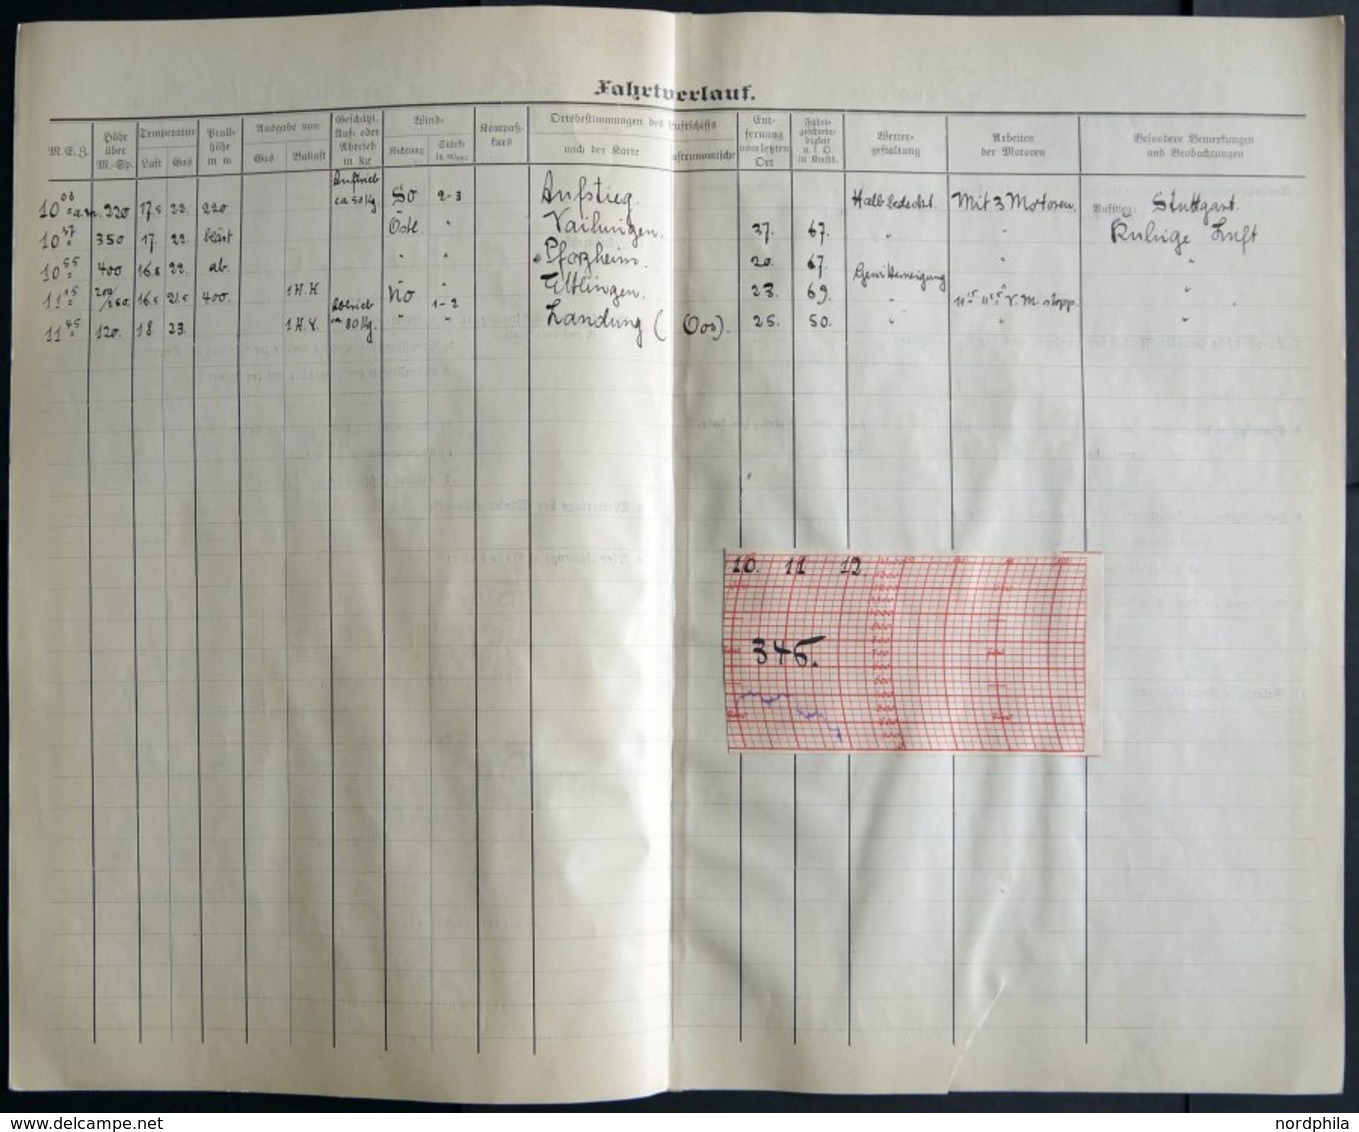 Fahrtverlauf.
M. E. Z. Höhe über M.-Sp. Temperatur Luft Gas Prallhöhe in m Ausgabe von Gas Ballast Geschätzt. Auf- oder Abtrieb in kg Wind- Richtung Stärke in m/sec Kompaß-kurs Ortsbestimmungen des Luftschiffs nach der Karte astronomische Ent-fernung vom letzten Ort Fahrt-geschwin-digkeit Wetter-gestaltung Arbeiten der Motoren Besondere Bemerkungen und Beobachtungen
10 06 a.m. 220 17,5 22. 220 Auftrieb ca 50 Kg SO 2-3 Aufstieg. Halb bedeckt. Mit 3 Motoren. Aufstieg: Stuttgart.
10 37 350 17. 22. bläst Östl. " Vaihingen. 37. 67. " " Ruhige Luft
10 55 400 16.8 22. ab. " " Pforzheim. 20. 67. Gewitterneigung " "
11 15 200/250. 16.5 21.5 400. 1 H. H NO " Ettlingen. 23. 69. " V. M. stopp. "
11 45 120. 18 23. 1 H. V. Abtrieb ca 80 Kg. " 1-2 Landung ( Oos). 25. 50. " "
10. 11 12
346.
nordphila